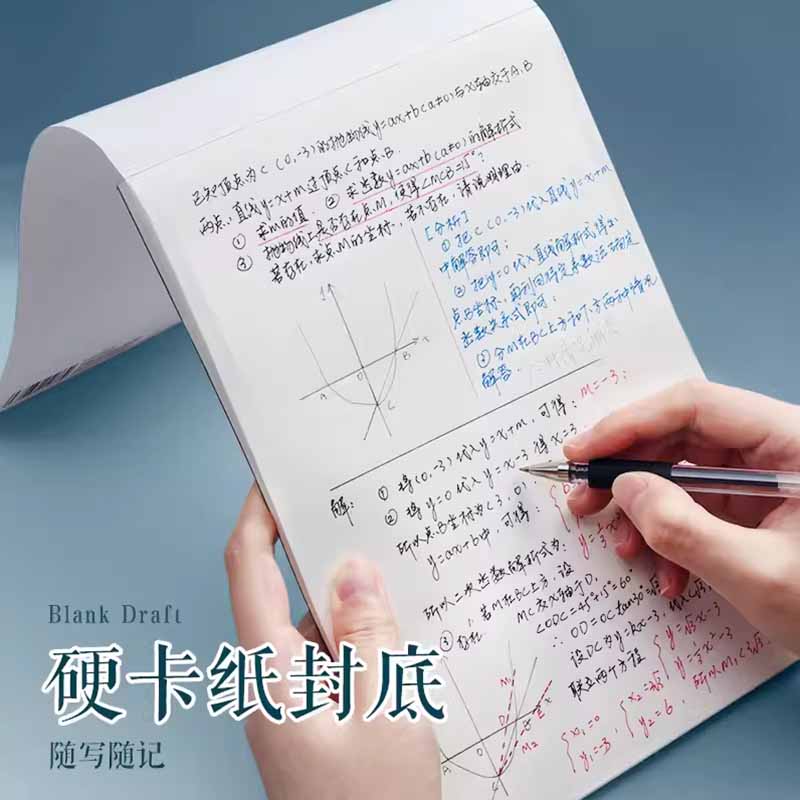 已知顶点为C(0,-3)的抛物线y=ax+b(a≠0)与x轴交于A,B
两点,直线y=x+m过顶点C和点B.
① 求m的值. ② 求函数y=ax+b(a≠0)的解析式
③ 抛物线上是否存在点M,使得∠MCB=15°?
若存在,求点M的坐标;若不存在,请说明理由.
[分析]
① 把C(0,-3)代入直线y=x+m
中解答即可;
② 把y=0代入直线解析式得出
点B坐标,再利用待定系数法确定
函数关系式即可;
③ 分M在BC上方和下方两种情况
解答.
y
x
A
O
B
C
解: ① 将(0,-3)代入y=x+m,可得: m=-3;
② 将y=0代入y=x-3得x=3
所以点B坐标为(3,0)
y=ax+b中 可得:
所以二次函数解析式为:
③ 存在 ,若M在BC上方,设
MC交x轴于D,
∠ODC=45°+15°=60°
∴ OD=OC tan30°
设DC为y=kx-3,代入
联立两个方程
y=√3x-3
y=⅓x²-3
x₁=0
y₁=-3,
y₂=6,
所以M₁
M₂
A
O
C
Blank Draft
硬卡纸封底
随写随记